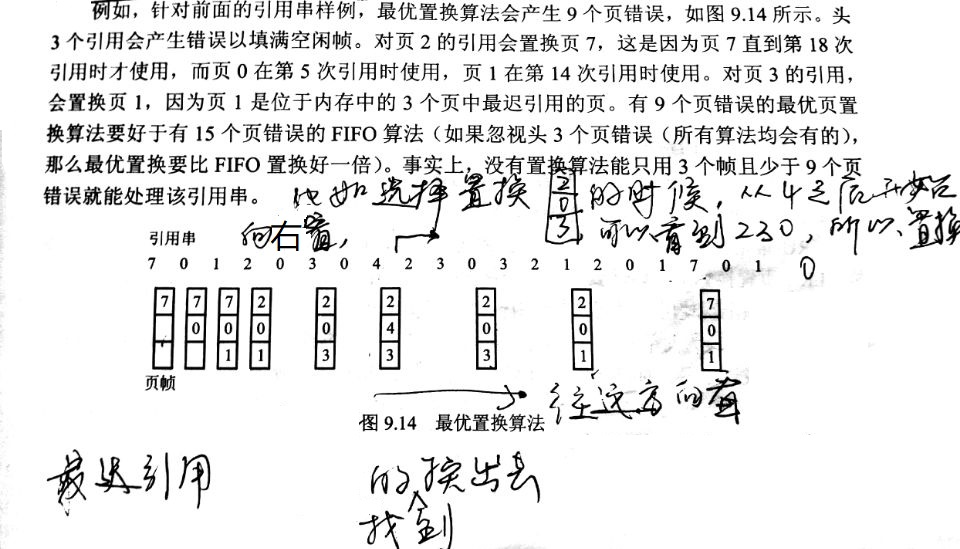 例如，针对前面的引用串样例，最优置换算法会产生 9 个页错误，如图 9.14 所示。头
3 个引用会产生错误以填满空闲帧。对页 2 的引用会置换页 7，这是因为页 7 直到第 18 次
引用时才使用，而页 0 在第 5 次引用时使用，页 1 在第 14 次引用时使用。对页 3 的引用，
会置换页 1，因为页 1 是位于内存中的 3 个页中最迟引用的页。有 9 个页错误的最优页置
换算法要好于有 15 个页错误的 FIFO 算法（如果忽视头 3 个页错误（所有算法均会有的），
那么最优置换要比 FIFO 置换好一倍）。事实上，没有置换算法能只用 3 个帧且少于 9 个页
错误就能处理该引用串。
比如选择置换 2 0 3 的时候，从4之后开始
向右看，可以看到230，所以置换
0
引用串
7 0 1 2 0 3 0 4 2 3 0 3 2 1 2 0 1 7 0 1
7 7 7 2 2 2 2 2 7
0 0 0 0 4 0 0 0
1 1 3 3 3 1 1
页帧
往远方向看
图 9.14 最优置换算法
最迟引用 的换出去
找到